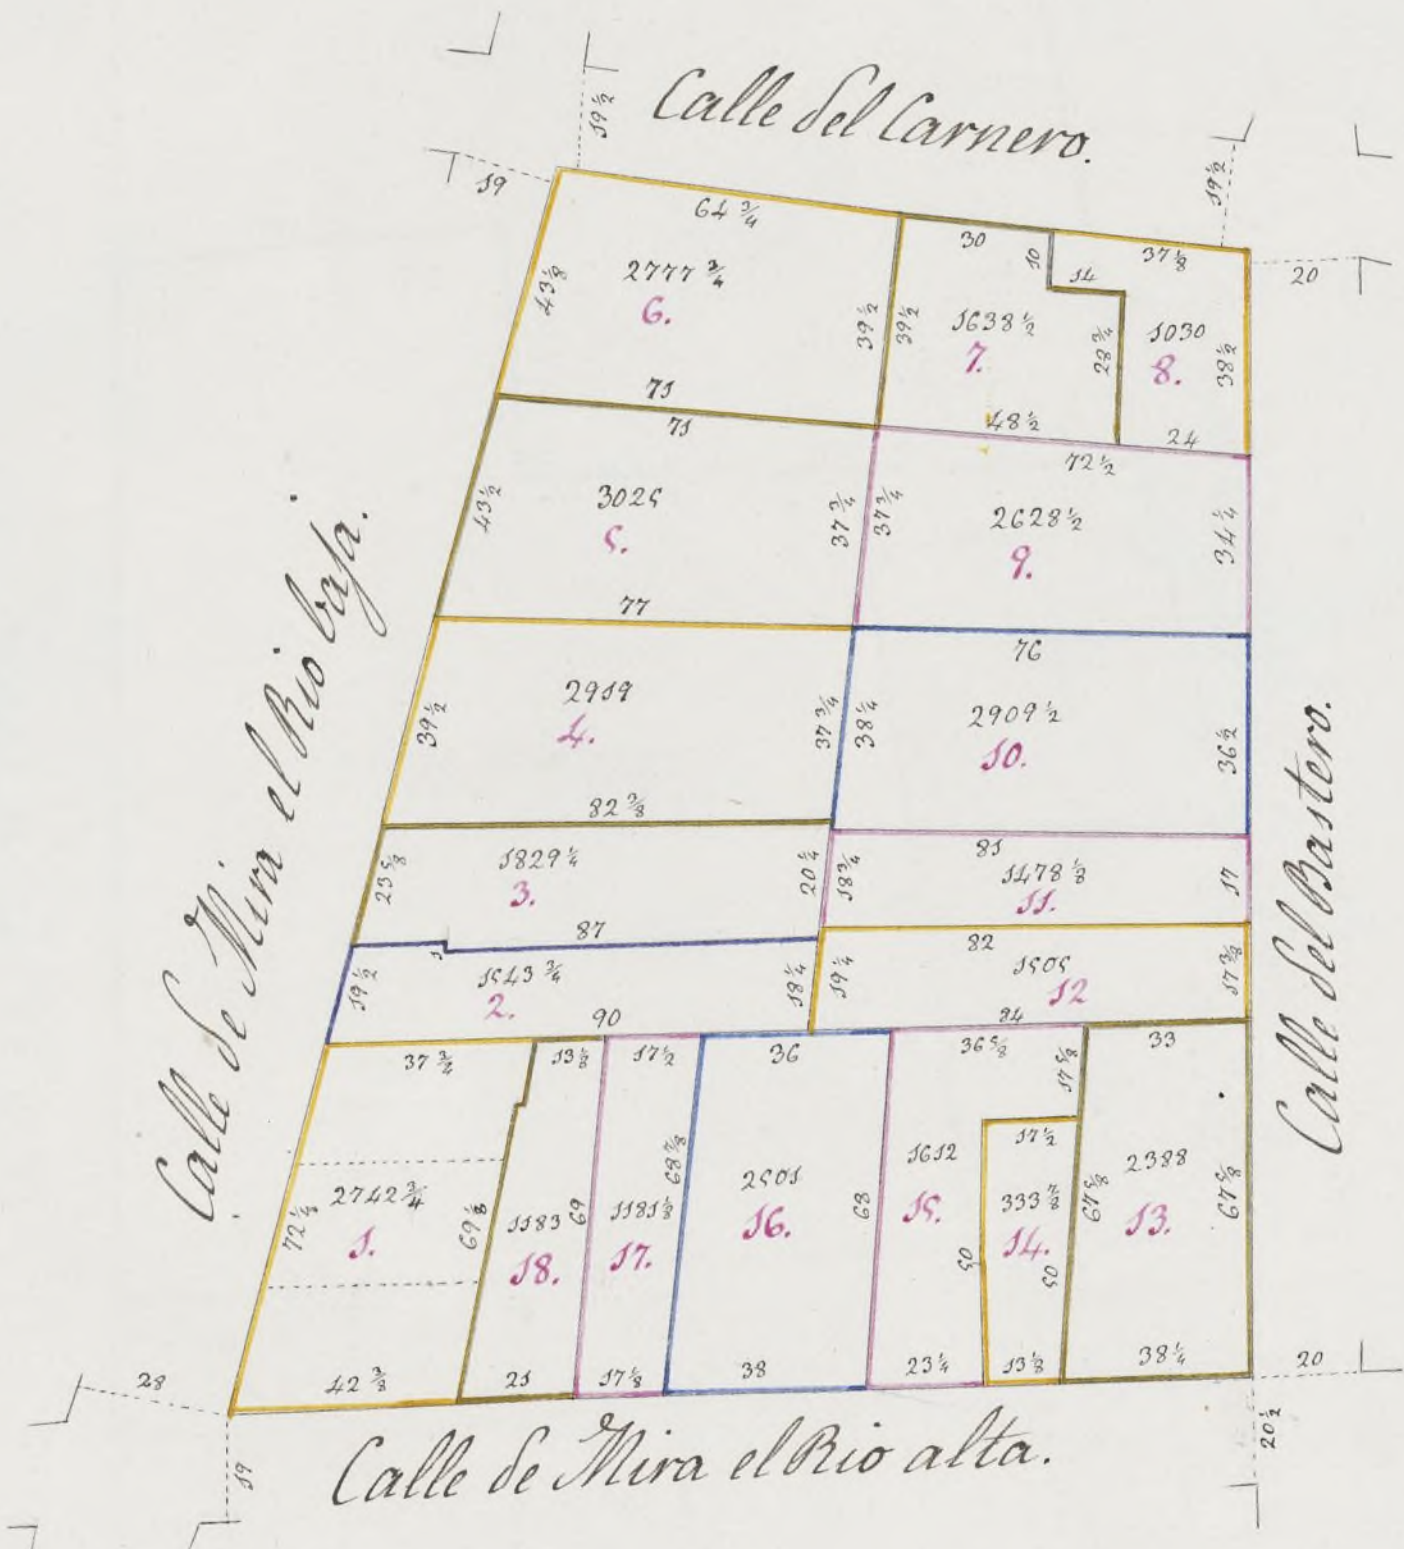 Calle del Carnero.
19 1/2
19
19 1/2
20
64 3/4
43 1/8
2777 3/4
6.
39 1/2
71
30
10
14
39 1/2
1638 1/2
7.
28 3/4
48 1/2
37 1/8
1030
8.
38 1/2
24
71
43 1/2
3025
5.
37 3/4
77
72 1/2
37 3/4
2628 1/2
9.
34 1/4
39 1/2
2919
4.
37 3/4
82 3/8
76
38 1/4
2909 1/2
10.
36 1/2
23 5/8
1829 1/4
3.
20 1/4
87
81
18 3/4
1478 1/8
11.
17
19 1/2
1
1543 3/4
2.
18 1/4
90
82
19 1/4
1505
12
17 3/8
84
37 3/4
72 1/4
2742 3/4
1.
69 1/8
42 3/8
13 1/2
1183
18.
69
21
17 1/2
1181 1/2
17.
68 7/8
17 1/8
36
2501
16.
68
38
36 5/8
17 5/8
1612
15.
50
23 1/4
17 1/2
333 7/8
14.
50
13 1/8
33
67 5/8
2388
13.
67 5/8
38 1/4
28
19
20
20 1/2
Calle de Mira el Rio baja.
Calle del Bastero.
Calle de Mira el Rio alta.